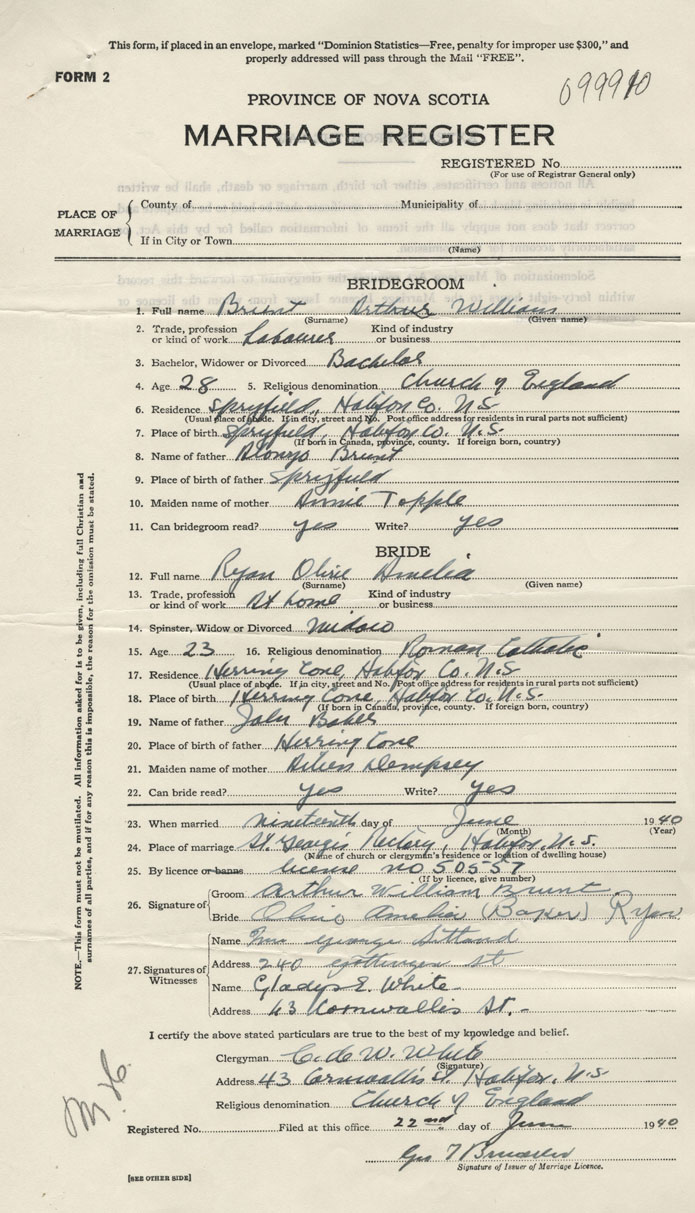 This form, if placed in an envelope, marked "Dominion Statistics—Free, penalty for improper use $300," and
properly addressed will pass through the Mail "FREE".
FORM 2
099910
PROVINCE OF NOVA SCOTIA
MARRIAGE REGISTER
REGISTERED No.
(For use of Registrar General only)
PLACE OF MARRIAGE
County of Municipality of
If in City or Town
(Name)
BRIDEGROOM
1. Full name Brunt Arthur William
(Surname) (Given name)
2. Trade, profession or kind of work Labourer Kind of industry or business
3. Bachelor, Widower or Divorced Bachelor
4. Age 28 5. Religious denomination Church of England
6. Residence Spryfield, Halifax Co. N.S.
(Usual place of abode. If in city, street and No. Post office address for residents in rural parts not sufficient)
7. Place of birth Spryfield, Halifax Co. N.S.
(If born in Canada, province, county. If foreign born, country)
8. Name of father Alonzo Brunt
9. Place of birth of father Spryfield
10. Maiden name of mother Annie Topple
11. Can bridegroom read? yes Write? yes
BRIDE
12. Full name Ryan Olive Amelia
(Surname) (Given name)
13. Trade, profession or kind of work At home Kind of industry or business
14. Spinster, Widow or Divorced Widow
15. Age 23 16. Religious denomination Roman Catholic
17. Residence Herring Cove, Halifax Co. N.S.
(Usual place of abode. If in city, street and No. Post office address for residents in rural parts not sufficient)
18. Place of birth Herring Cove, Halifax Co. N.S.
(If born in Canada, province, county. If foreign born, country)
19. Name of father John Baker
20. Place of birth of father Herring Cove
21. Maiden name of mother Dempsey
22. Can bride read? yes Write? yes
23. When married nineteenth day of June 1940
(Month) (Year)
24. Place of marriage St. George's Rectory, Halifax, N.S.
(Name of church or clergyman's residence or location of dwelling house)
25. By licence or banns license no 50557
(If by licence, give number)
26. Signature of
Groom Arthur William Brunt
Bride Olive Amelia (Baker) Ryan
27. Signatures of Witnesses
Name Mrs George
Address 240 Gottingen St
Name Gladys E. White
Address 43 Cornwallis St.
I certify the above stated particulars are true to the best of my knowledge and belief.
Clergyman C. de W. White
(Signature)
Address 43 Cornwallis St. Halifax, N.S
Religious denomination Church of England
Registered No. Filed at this office 22nd day of June 1940
Geo T
Signature of Issuer of Marriage Licence.
[SEE OTHER SIDE]
NOTE.—This form must not be mutilated. All information asked for is to be given, including full Christian and
surnames of all parties, and if for any reason this is impossible, the reason for the omission must be stated.